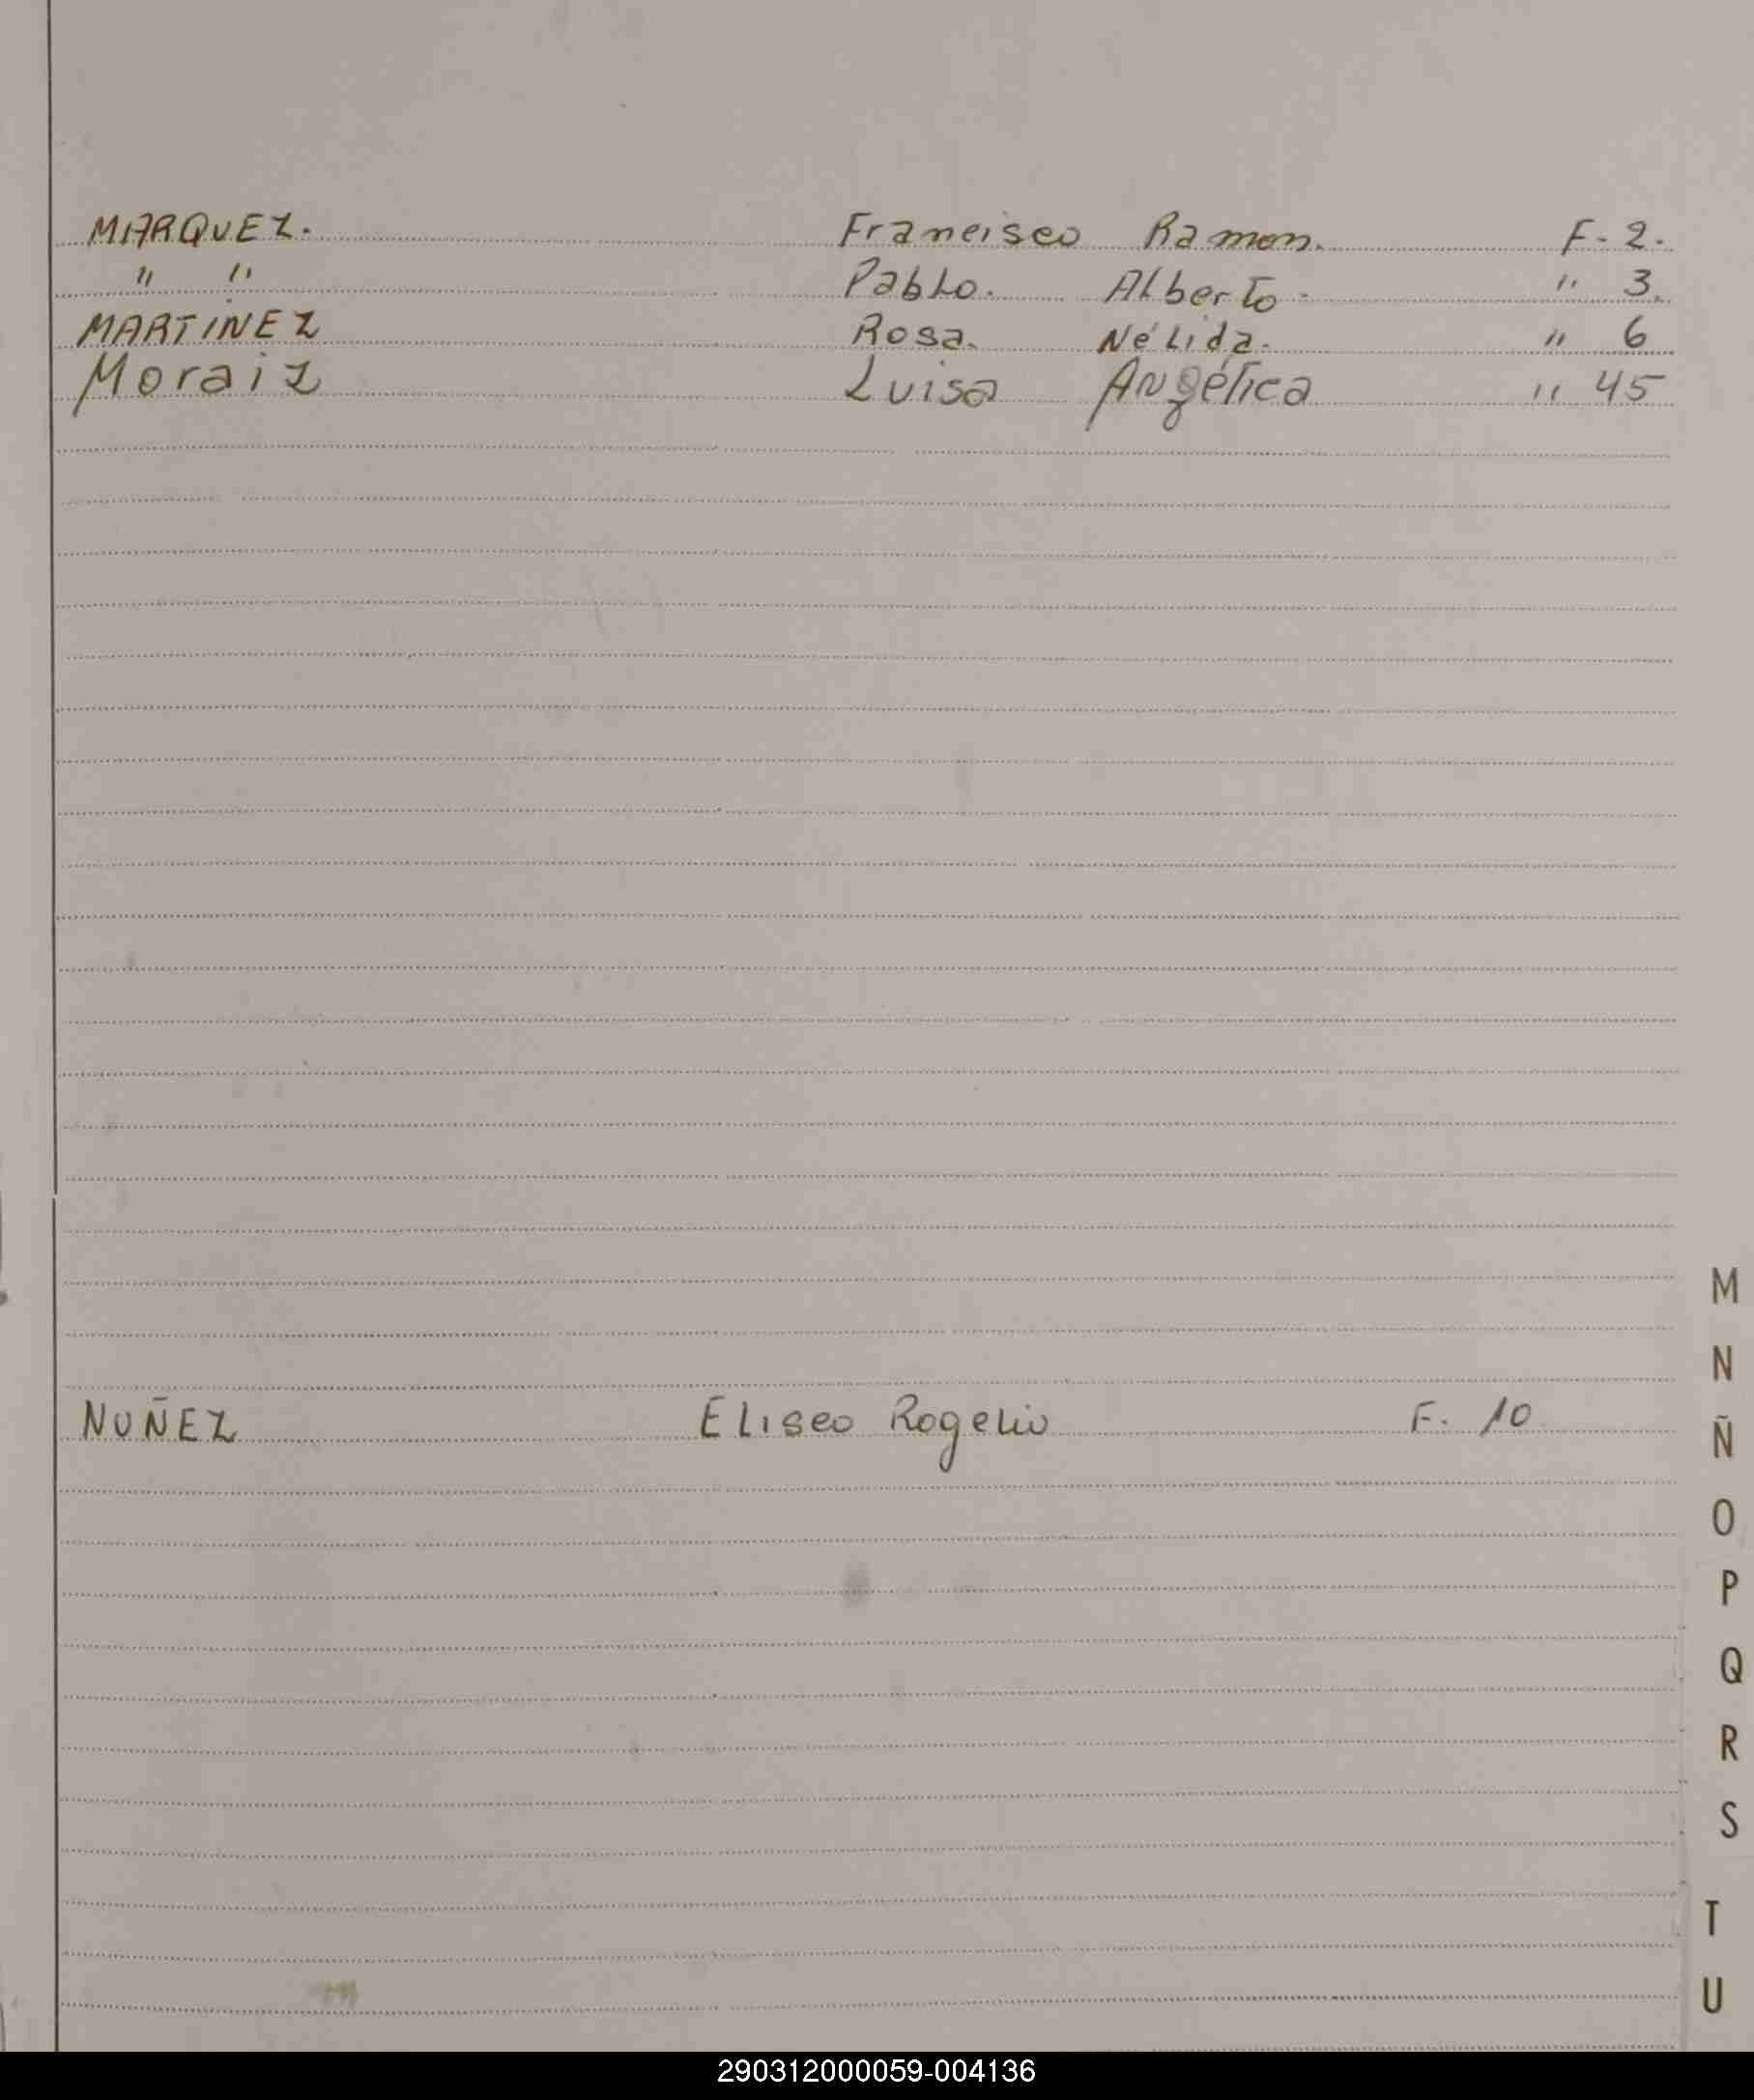 MARQUEZ. Francisco Ramon. F. 2.
" " Pablo. Alberto. " 3.
MARTINEZ Rosa. Nélida. " 6
Moraiz Luisa Angélica " 45
M
N
NUÑEZ Eliseo Rogelio F. 10
Ñ
O
P
Q
R
S
T
U
290312000059-004136